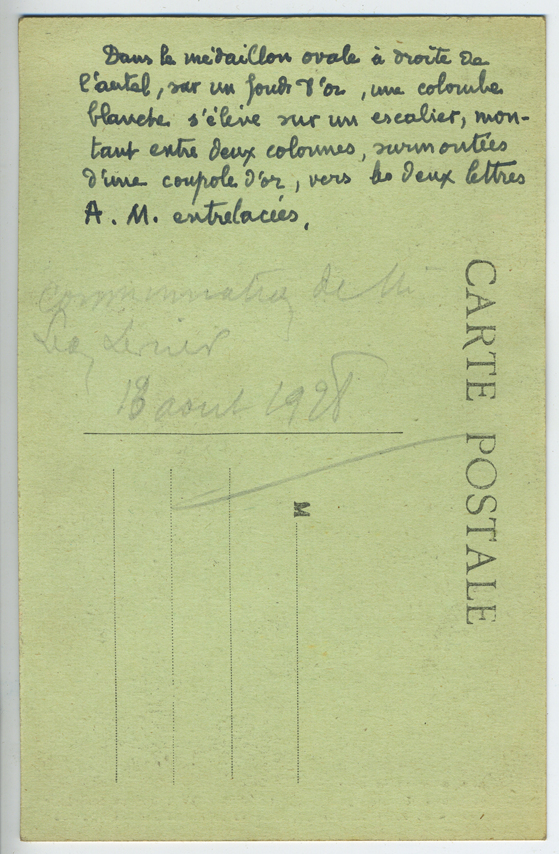 Dans le médaillon ovale à droite de
l'autel, sur un fond d'or, une colombe
blanche s'élève sur un escalier, mon-
tant entre deux colonnes, surmontées
d'une coupole d'or, vers les deux lettres
A. M. entrelacées.
de M
18 aout 1928
CARTE POSTALE
M